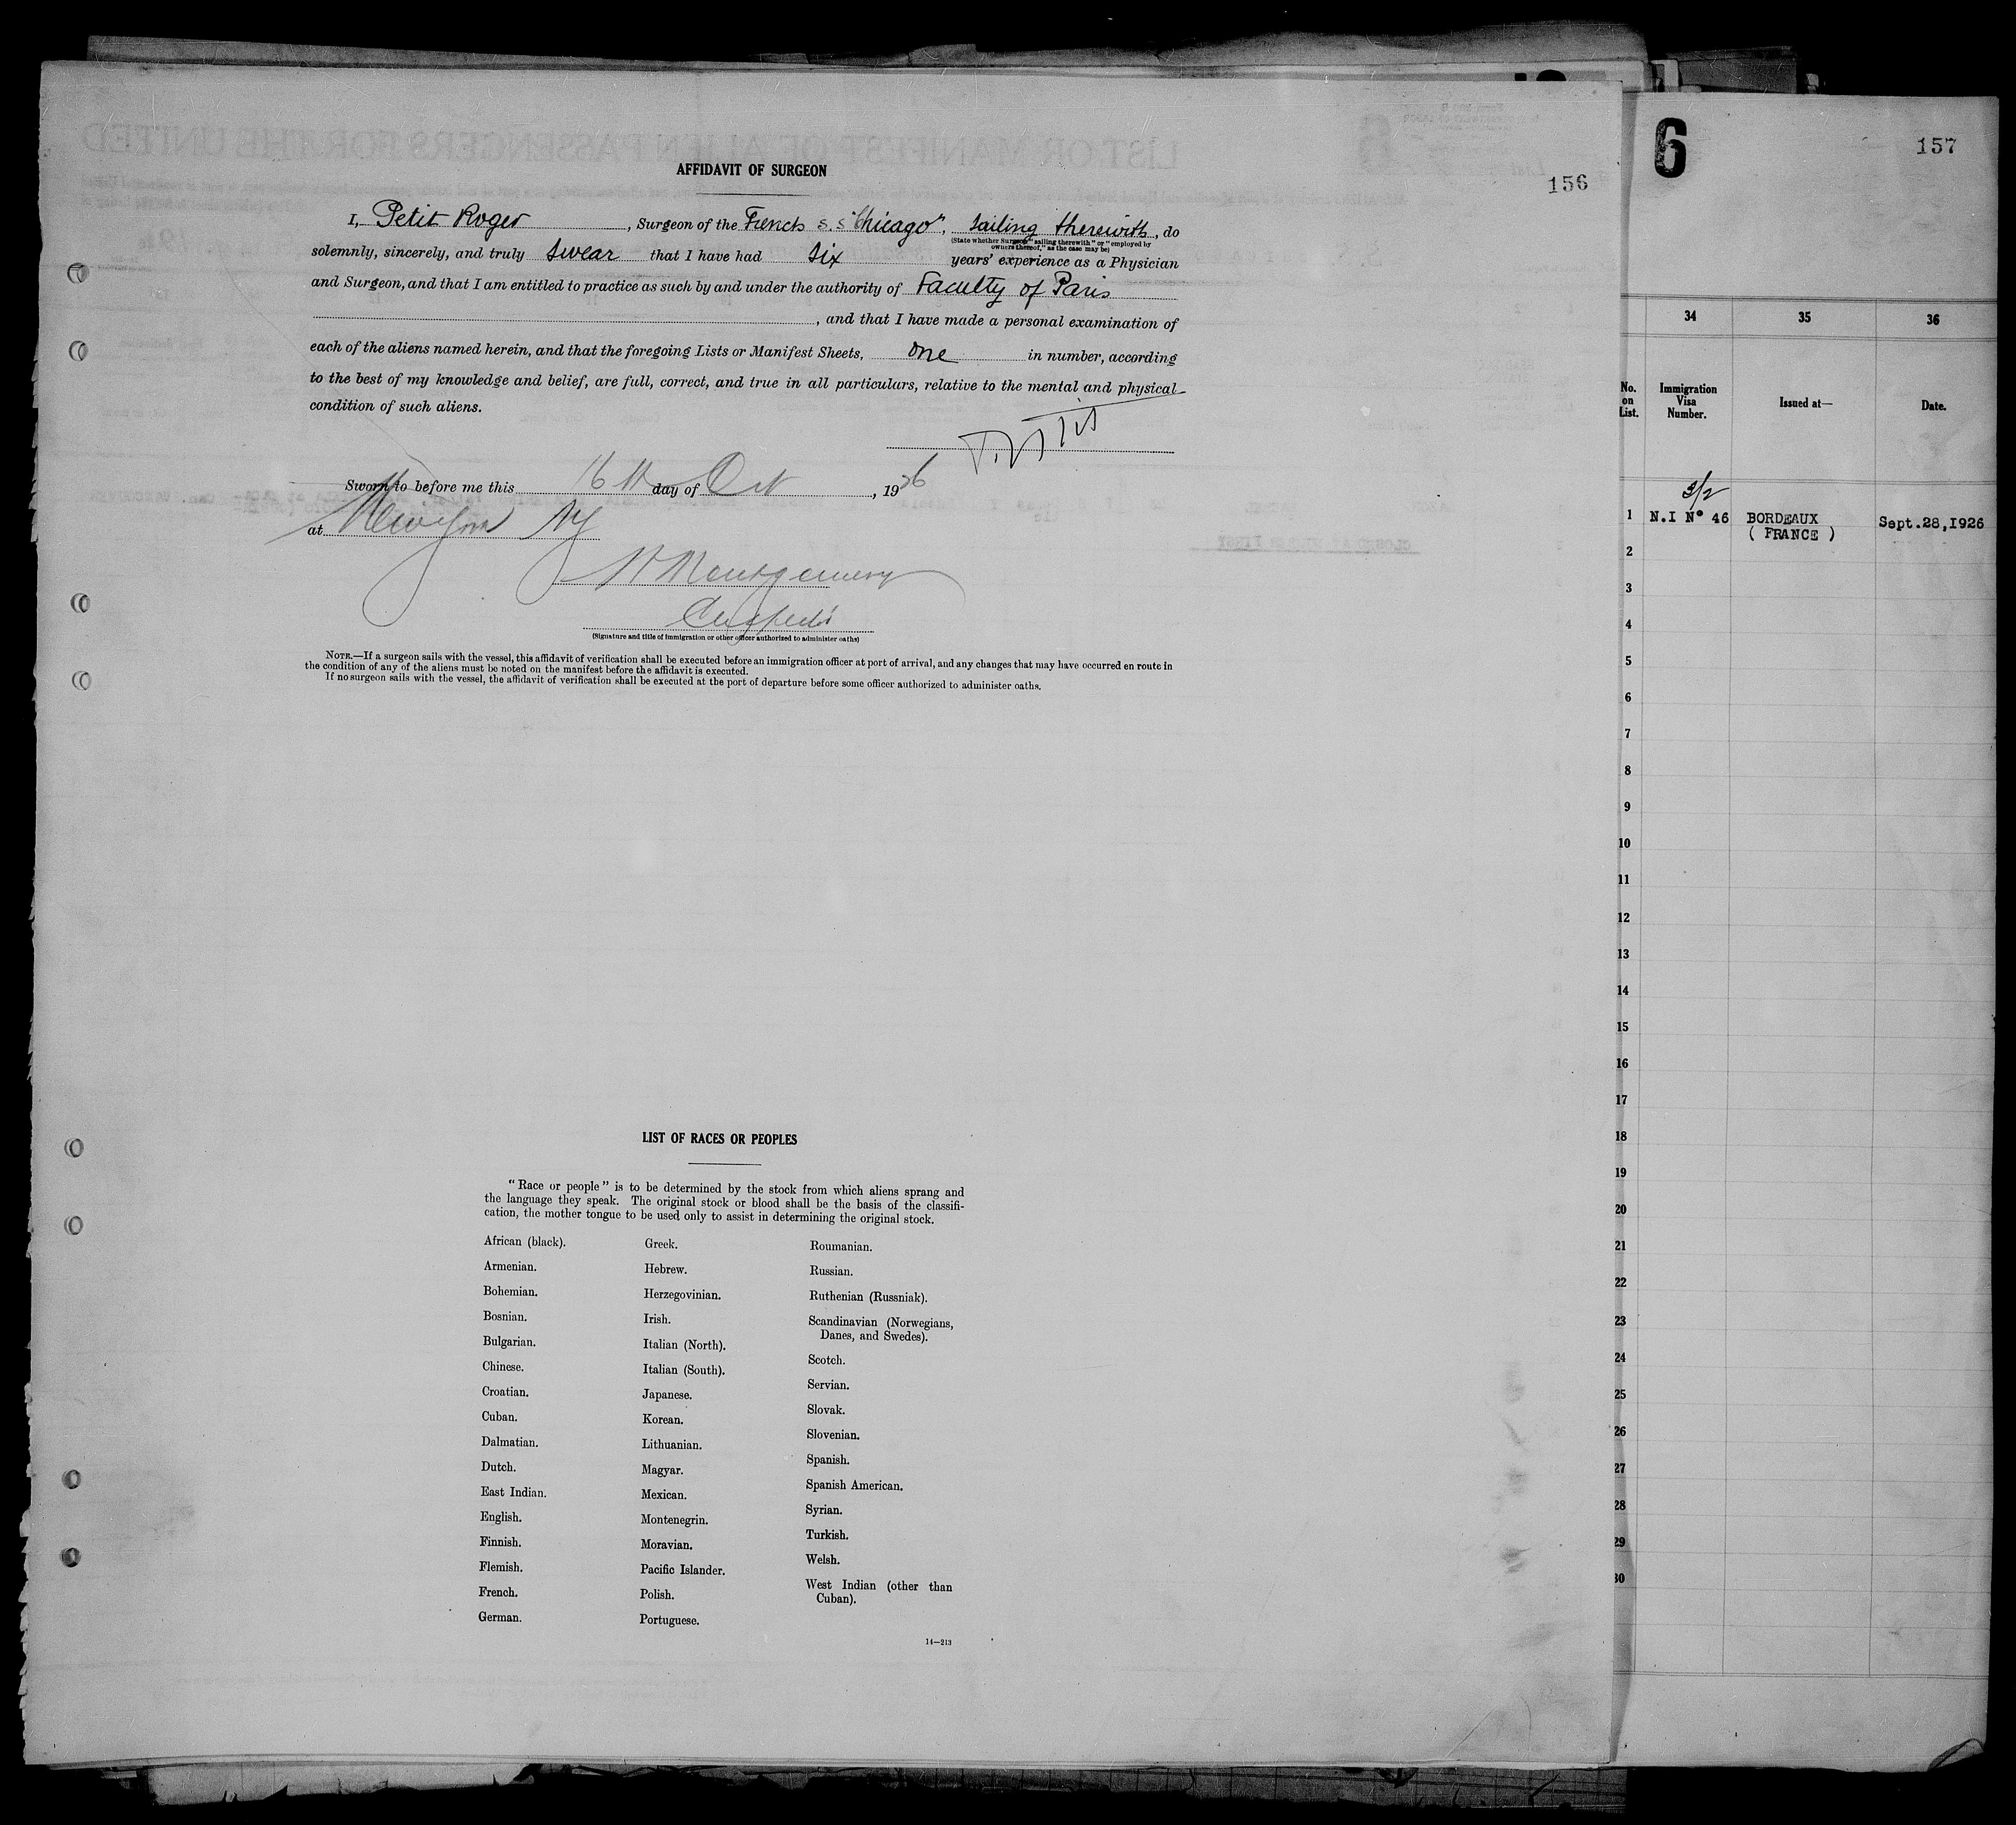 AFFIDAVIT OF SURGEON
156
I, Petit Roger, Surgeon of the French S.S "Chicago", sailing therewith, do
(State whether Surgeon "sailing therewith" or "employed by
owners thereof," as the case may be)
solemnly, sincerely, and truly swear that I have had six years' experience as a Physician
and Surgeon, and that I am entitled to practice as such by and under the authority of Faculty of Paris
, and that I have made a personal examination of
each of the aliens named herein, and that the foregoing Lists or Manifest Sheets, one in number, according
to the best of my knowledge and belief, are full, correct, and true in all particulars, relative to the mental and physical
condition of such aliens.
Sworn to before me this 16th day of Oct, 1926
at New York NY
Montgomery
(Signature and title of immigration or other officer authorized to administer oaths)
NOTE.—If a surgeon sails with the vessel, this affidavit of verification shall be executed before an immigration officer at port of arrival, and any changes that may have occurred en route in
the condition of any of the aliens must be noted on the manifest before the affidavit is executed.
If no surgeon sails with the vessel, the affidavit of verification shall be executed at the port of departure before some officer authorized to administer oaths.
LIST OF RACES OR PEOPLES
"Race or people" is to be determined by the stock from which aliens sprang and
the language they speak. The original stock or blood shall be the basis of the classifi-
cation, the mother tongue to be used only to assist in determining the original stock.
African (black).
Armenian.
Bohemian.
Bosnian.
Bulgarian.
Chinese.
Croatian.
Cuban.
Dalmatian.
Dutch.
East Indian.
English.
Finnish.
Flemish.
French.
German.
Greek.
Hebrew.
Herzegovinian.
Irish.
Italian (North).
Italian (South).
Japanese.
Korean.
Lithuanian.
Magyar.
Mexican.
Montenegrin.
Moravian.
Pacific Islander.
Polish.
Portuguese.
Roumanian.
Russian.
Ruthenian (Russniak).
Scandinavian (Norwegians,
Danes, and Swedes).
Scotch.
Servian.
Slovak.
Slovenian.
Spanish.
Spanish American.
Syrian.
Turkish.
Welsh.
West Indian (other than
Cuban).
14—213
6
157
34 35 36
No.
on
List.
Immigration
Visa
Number.
Issued at—
Date.
3/2
1 N.I N° 46 BORDEAUX Sept.28,1926
( FRANCE )
2
3
4
5
6
7
8
9
10
11
12
13
14
15
16
17
18
19
20
21
22
23
24
25
26
27
28
29
30